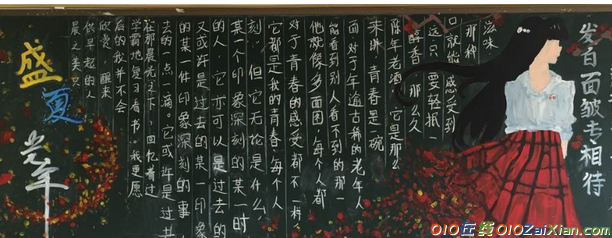 盛夏光年
晨之美只
供早起的人
欣赏，醒来
后的我并不会
学霸地复习看书。我更愿
在那晨光之下，回忆着过
去的一点一滴。它或许是过去
的某一件印象深刻的事
又或许是过去的某一印象
的人，它亦可以是过去的
某一个印象深刻的某一时
刻，但它无论是什么，
它都是我的青春，每个人
对于青春的感受都不一样
他就像多面图，每个人都
能看到别人看不到的那一
面 对于年逾古稀的老年人
来讲 青春是一碗
陈年老酒 它是那么
醇香 那么久
远 只要轻抿一
口就能感受到
那种
滋味
发白面皱专相待
010在线010ZaiXian.com